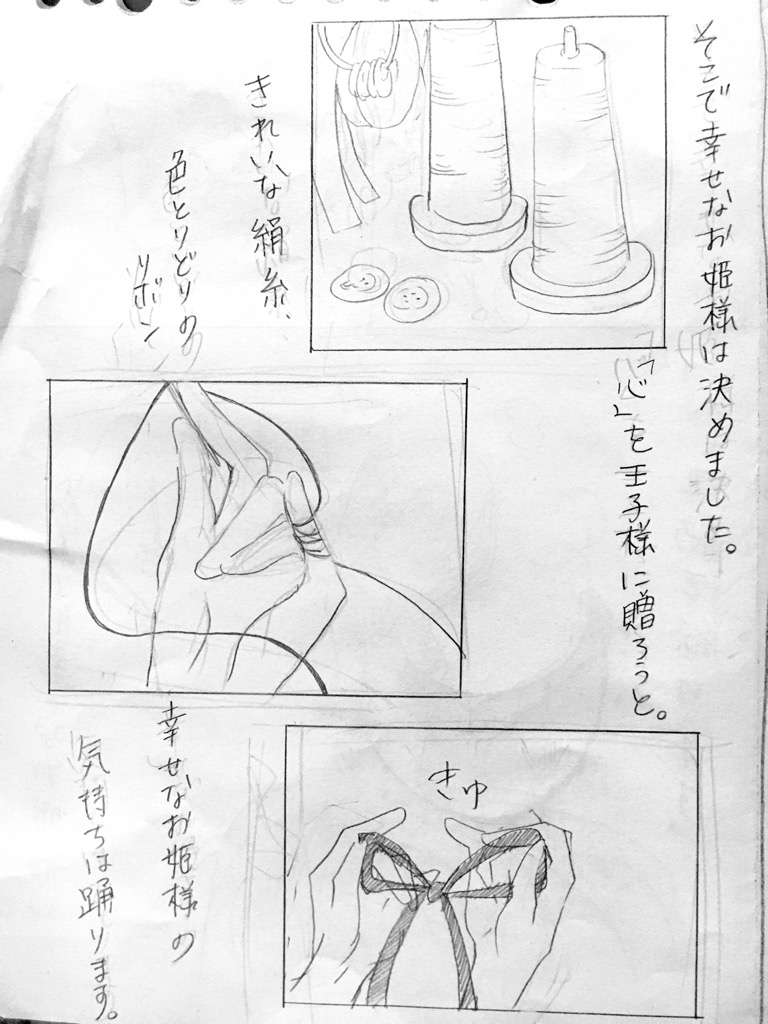 そこで幸せなお姫様は決めました。
「心」を王子様に贈ろうと。
きれいな絹糸、
色とりどりの
リボン
幸せなお姫様の
気持ちは踊ります。
きゅ